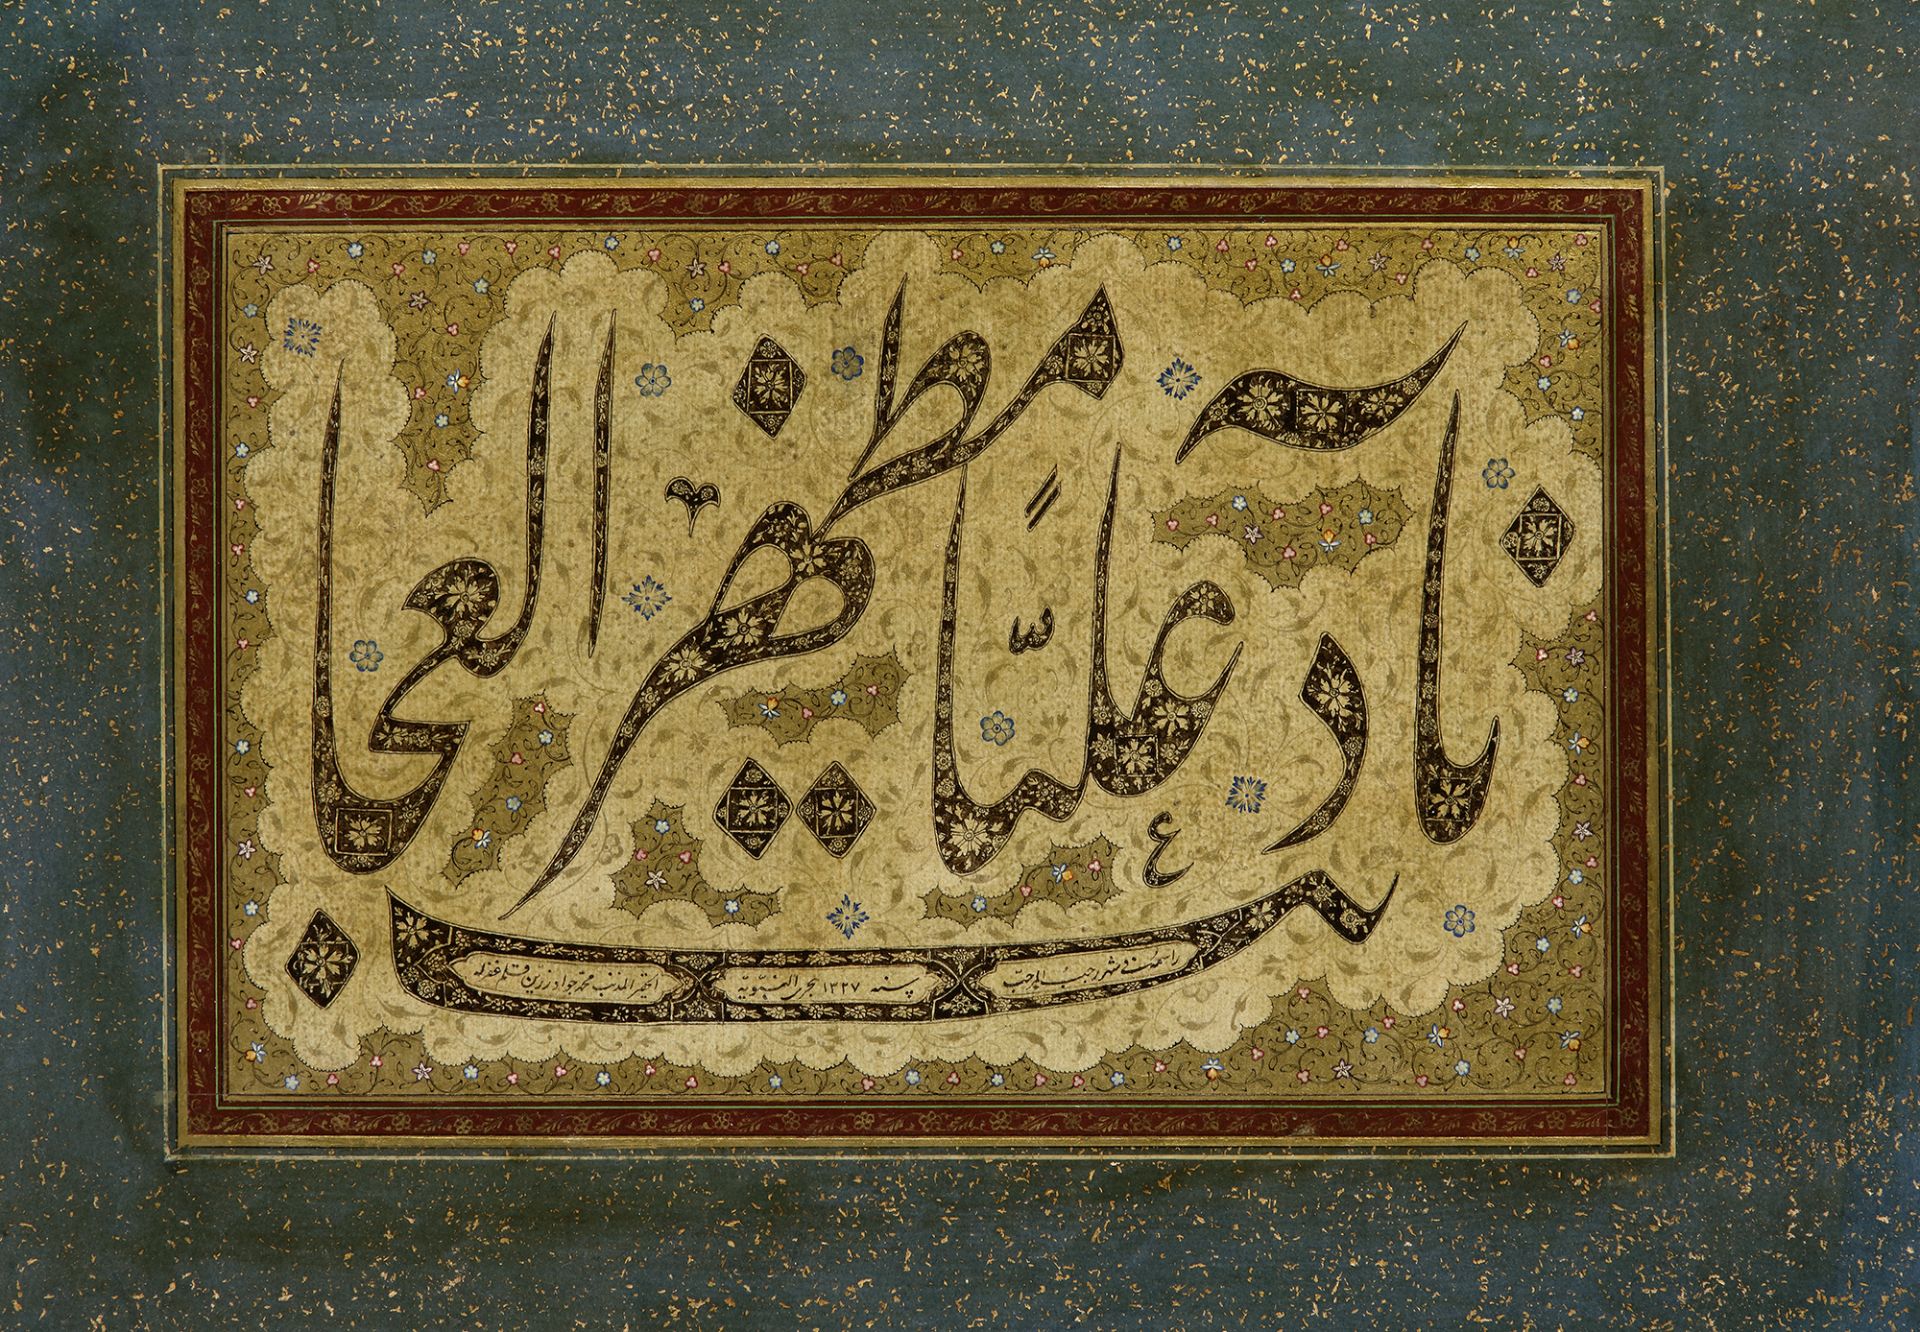 ناد علیّاً مظهر العجائب
ع
راسمه فی شهر رجب المرجب
سنه ۱۳۲۷ هجری النبویّه
الحقیر المذنب محمد جواد زرین قلم غفرله